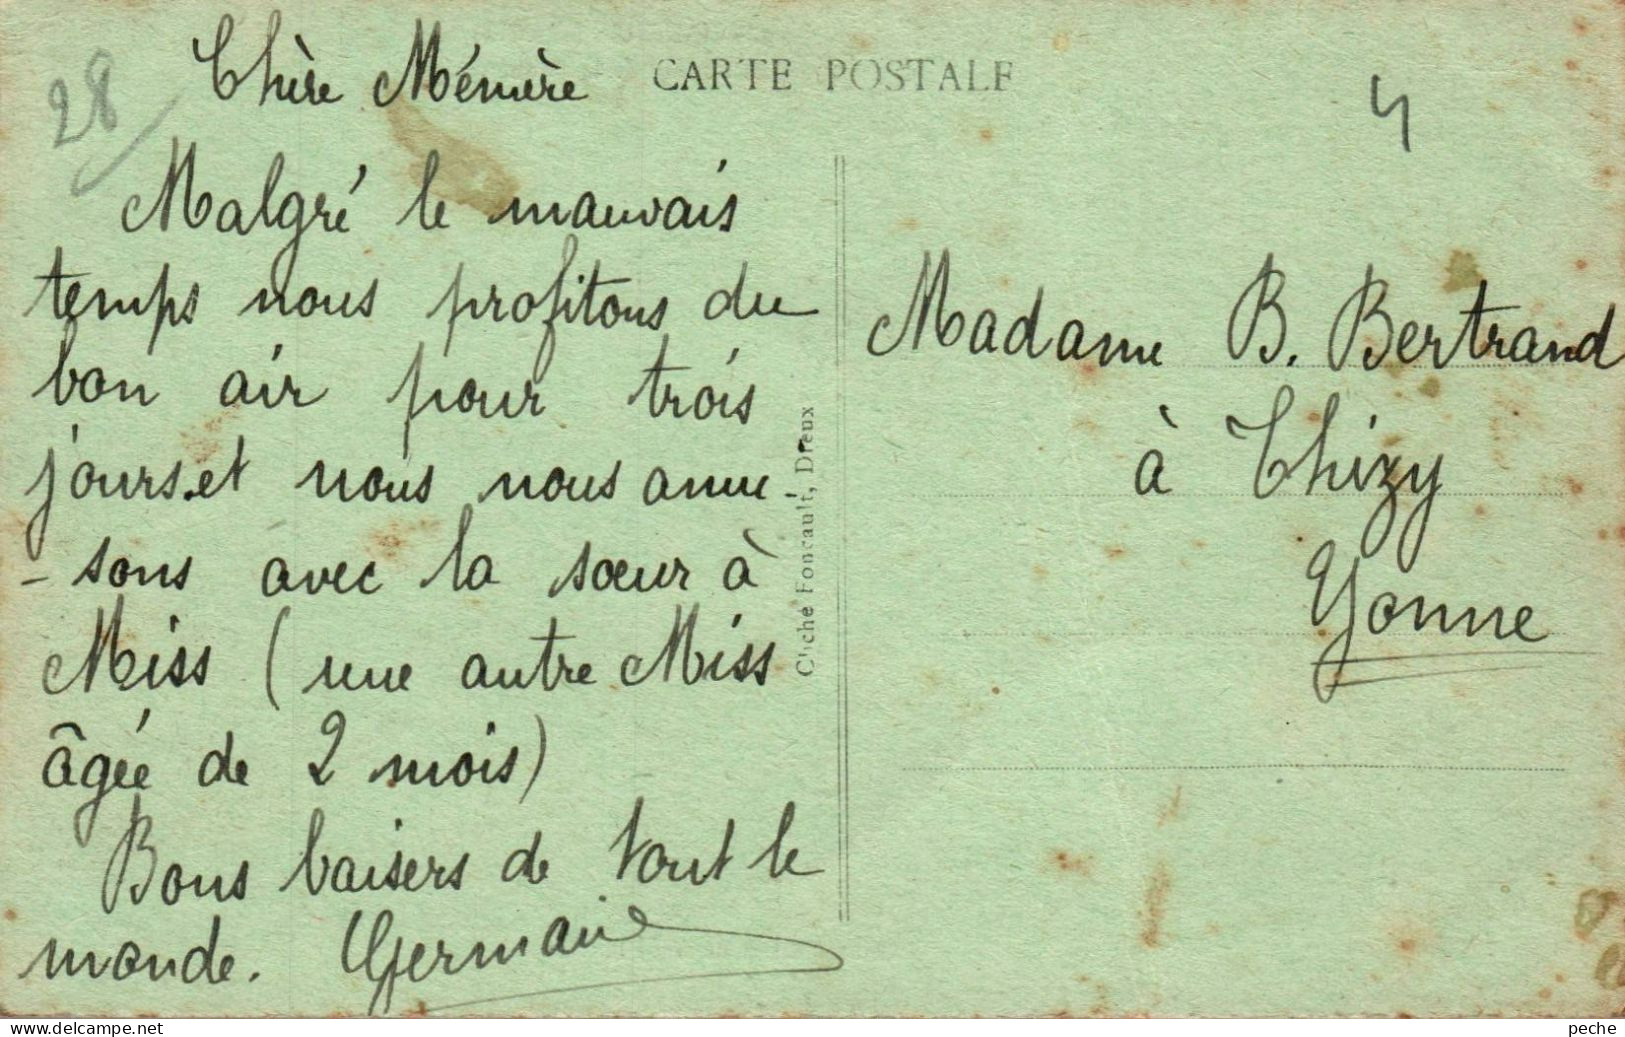 28
Chère Mémère
CARTE POSTALE
4
Malgré le mauvais
temps nous profitons du
bon air pour trois
jours.et nous nous amu-
- sons avec la sœur à
Miss (une autre Miss
âgée de 2 mois)
Bons baisers de tout le
monde. Germaine
Cliché Foucault, Dreux
Madame B. Bertrand
à Thizy
Yonne
www.delcampe.net
peche